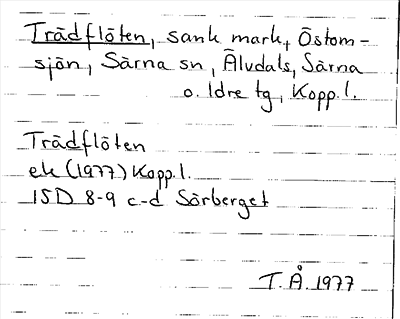 Trädflöten, sank mark, Östom-
sjön, Särna sn, Älvdals, Särna
o. Idre tg, Kopp. l.
Trädflöten
ek (1977) Kopp. l.
15D 8-9 c-d Sörberget
T. Å. 1977